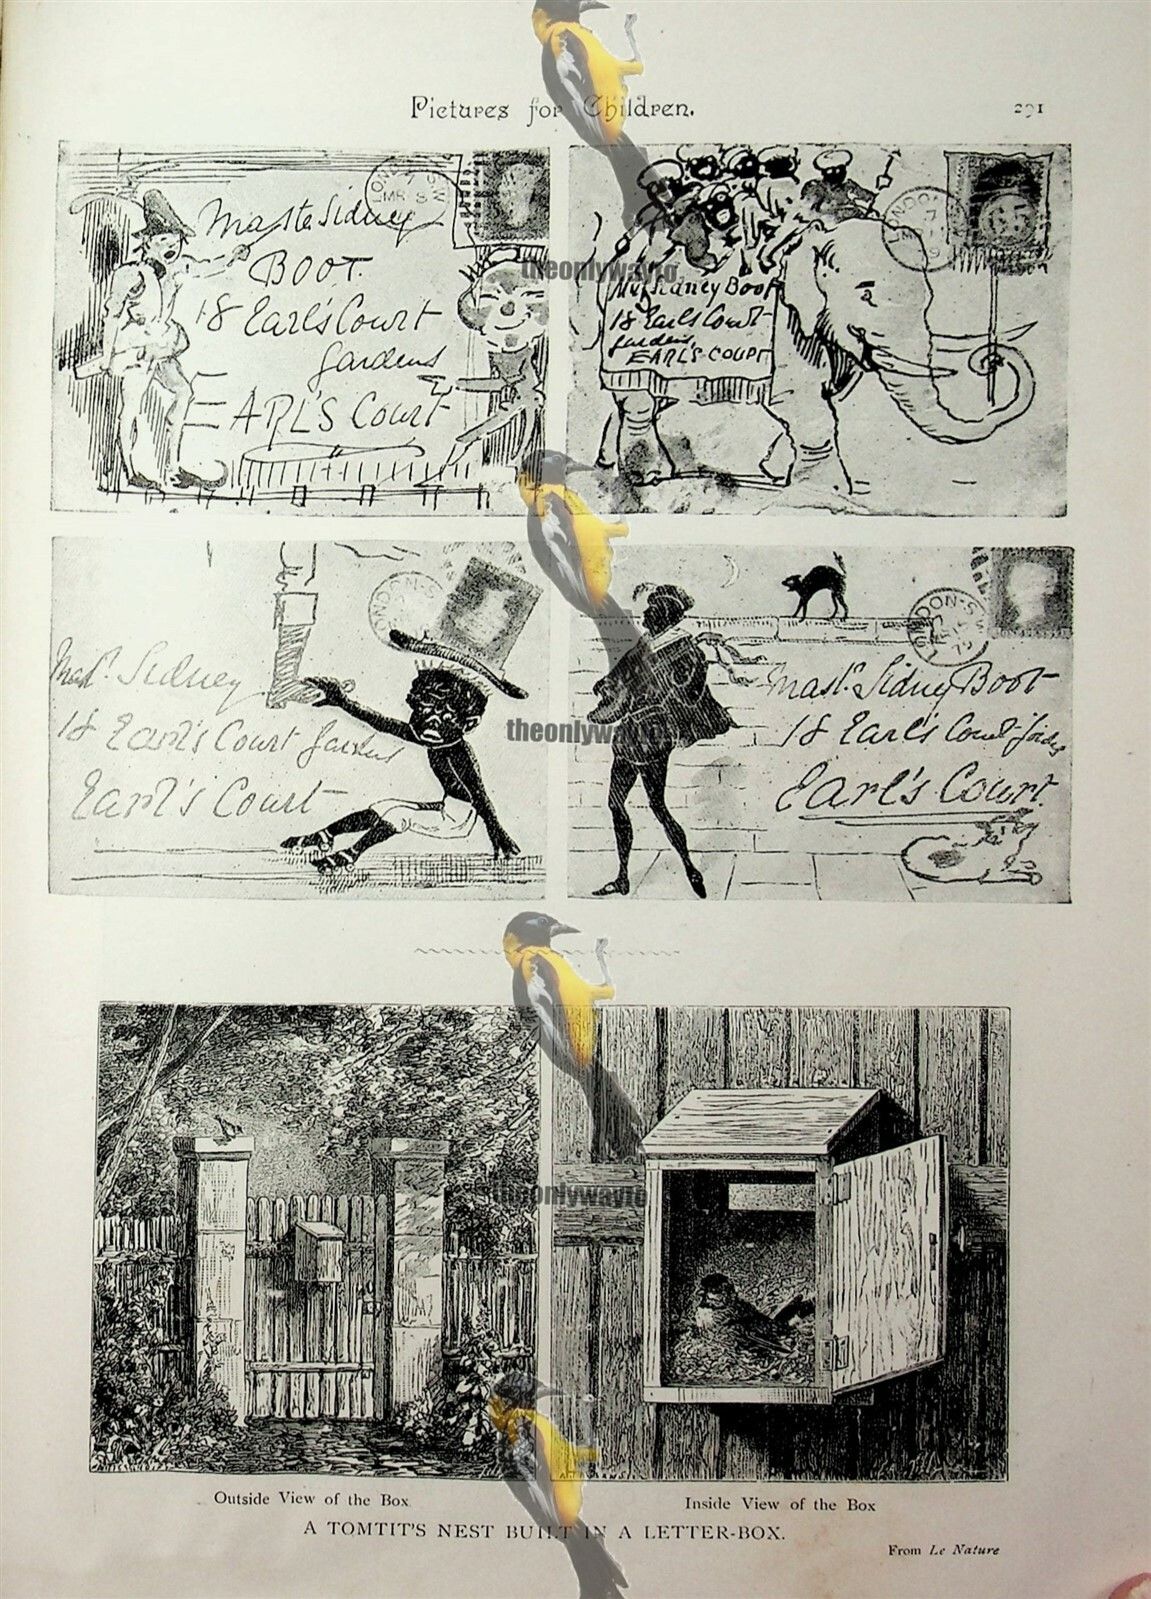 Pictures for Children.
291
Maste Sidney
BOOT.
18 Earl's Court
gardens
ARL'S Court
LONDON
theonlywayro
Mr Sidney Boot
18 Earls Court
gardens,
EARL'S-COURT
LONDON-S
Mast. Sidney
18 Earl's Court Gardens
Earl's Court
LONDON-S.W
theonlywayro
Mast. Sidney Boot
18 Earl's Court
Earl's Court.
theonlywayro
Outside View of the Box
Inside View of the Box
A TOMTIT'S NEST BUILT IN A LETTER-BOX.
From Le Nature